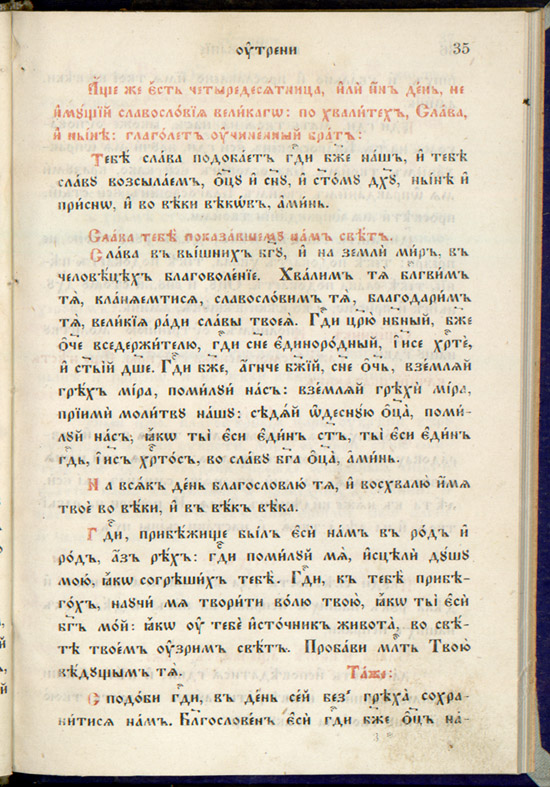 ᲂу҆́трени 35
А҆́ще же є҆́сть четыредесѧ́тница, и҆лѝ и҆́нъ де́нь, не
и҆мꙋ́щїй славосло́вїѧ вели́кагѡ: по хвали́техъ, Сла́ва,
и҆ ны́нѣ: глаго́летъ ᲂу҆чине́нный бра́тъ:
Тебѣ̀ сла́ва подоба́етъ гд҇и бж҃е на́шъ, и҆ тебѣ̀
сла́вꙋ возсыла́емъ, ѻ҆ц҃ꙋ̀ и҆ сн҃ꙋ, и҆ ст҃о́мꙋ дх҃ꙋ, ны́нѣ и҆
при́снѡ, и҆ во вѣ́ки вѣкѡ́въ, а҆ми́нь.
Сла́ва тебѣ̀ показа́вшемꙋ на́мъ свѣ́тъ.
Сла́ва въ вы́шнихъ бг҃ꙋ, и҆ на землѝ ми́ръ, въ
человѣ́цѣхъ благоволе́нїе. Хва́лимъ тѧ̀ блг҃ви́мъ
тѧ̀, кла́нѧемтисѧ, славосло́вимъ тѧ̀, благодари́мъ
тѧ̀, вели́кїѧ ра́ди сла́вы твоеѧ̀. Гд҇и цр҃ю̀ нб҇ный, бж҃е
ѻ҆́ч҃е вседержи́телю, гд҇и сн҃е є҆диноро́дный, і҆и҃се хр҇тѐ,
и҆ ст҃ы́й дш҃е. Гд҇и бж҃е, а҆́гнче бж҃їй, сн҃е ѻ҆ч҃ь, взе́млѧй
грѣ́хъ мі́ра, поми́лꙋй на́съ: взе́млѧй грѣхѝ мі́ра,
прїимѝ моли́твꙋ на́шꙋ: сѣдѧ́й ѡ҆деснꙋ́ю ѻ҆ц҃а̀, поми́-
лꙋй на́съ, ꙗ҆́кѡ ты̀ є҆сѝ є҆ди́нъ ст҃ъ, ты̀ є҆сѝ є҆ди́нъ
гд҇ь, і҆и҃съ хр҇то́съ, во сла́вꙋ бг҃а ѻ҆ц҃а̀, а҆ми́нь.
На всѧ́къ де́нь благословлю́ тѧ, и҆ восхвалю̀ и҆́мѧ
твоѐ во вѣ́ки, и҆ въ вѣ́къ вѣ́ка.
Гд҇и, прибѣ́жище бы́лъ є҆сѝ на́мъ въ ро́дъ и҆
ро́дъ, а҆́зъ рѣ́хъ: гд҇и поми́лꙋй мѧ̀, и҆сцѣлѝ дꙋ́шꙋ
мою̀, ꙗ҆́кѡ согрѣши́хъ тебѣ̀. Гд҇и, къ тебѣ̀ прибѣ-
го́хъ, наꙋчи́ мѧ твори́ти во́лю твою̀, ꙗ҆́кѡ ты̀ є҆сѝ
бг҃ъ мо́й: ꙗ҆́кѡ ᲂу҆ тебє̀ и҆сто́чникъ живота̀, во свѣ́-
тѣ твое́мъ ᲂу҆́зримъ свѣ́тъ. Проба́ви мл҇ть Твою̀
вѣ́дꙋщымъ тѧ̀. Та́же:
Сподо́би гд҇и, въ де́нь се́й без̾ грѣха̀ сохра-
ни́тисѧ на́мъ. Бл҃гослове́нъ є҆сѝ гд҇и бж҃е ѻ҆ц҃ъ на́-